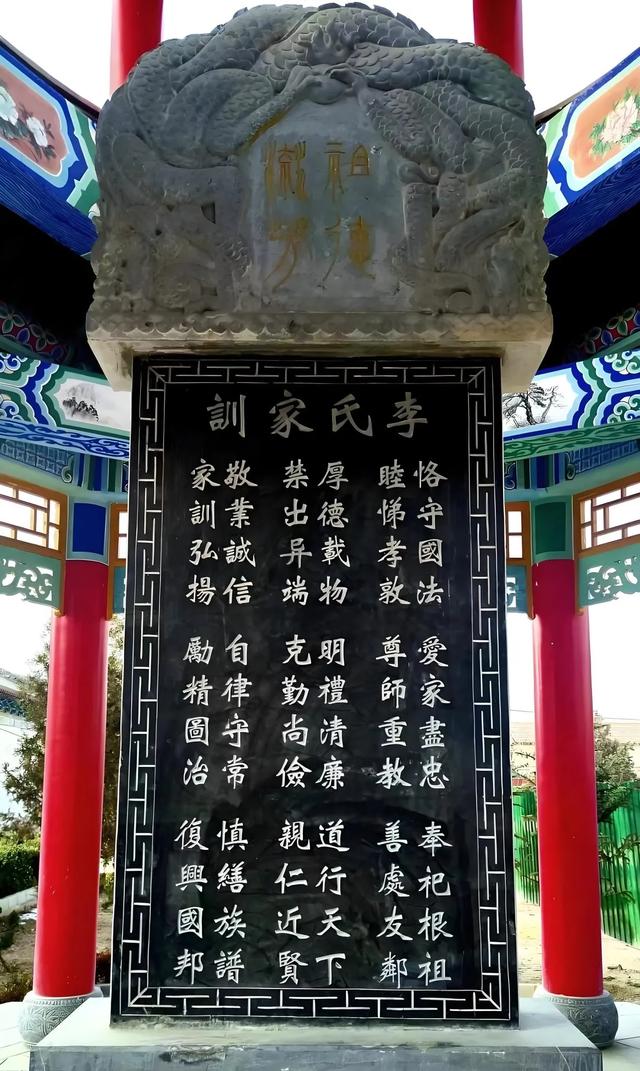 祖德
流芳
李氏家訓
恪守國法 愛家盡忠 奉祀根祖
睦悌孝敦 尊師重教 善處友鄰
厚德載物 明禮清廉 道行天下
禁出异端 克勤尚儉 親仁近賢
敬業誠信 自律守常 慎繕族譜
家訓弘揚 勵精圖治 復興國邦